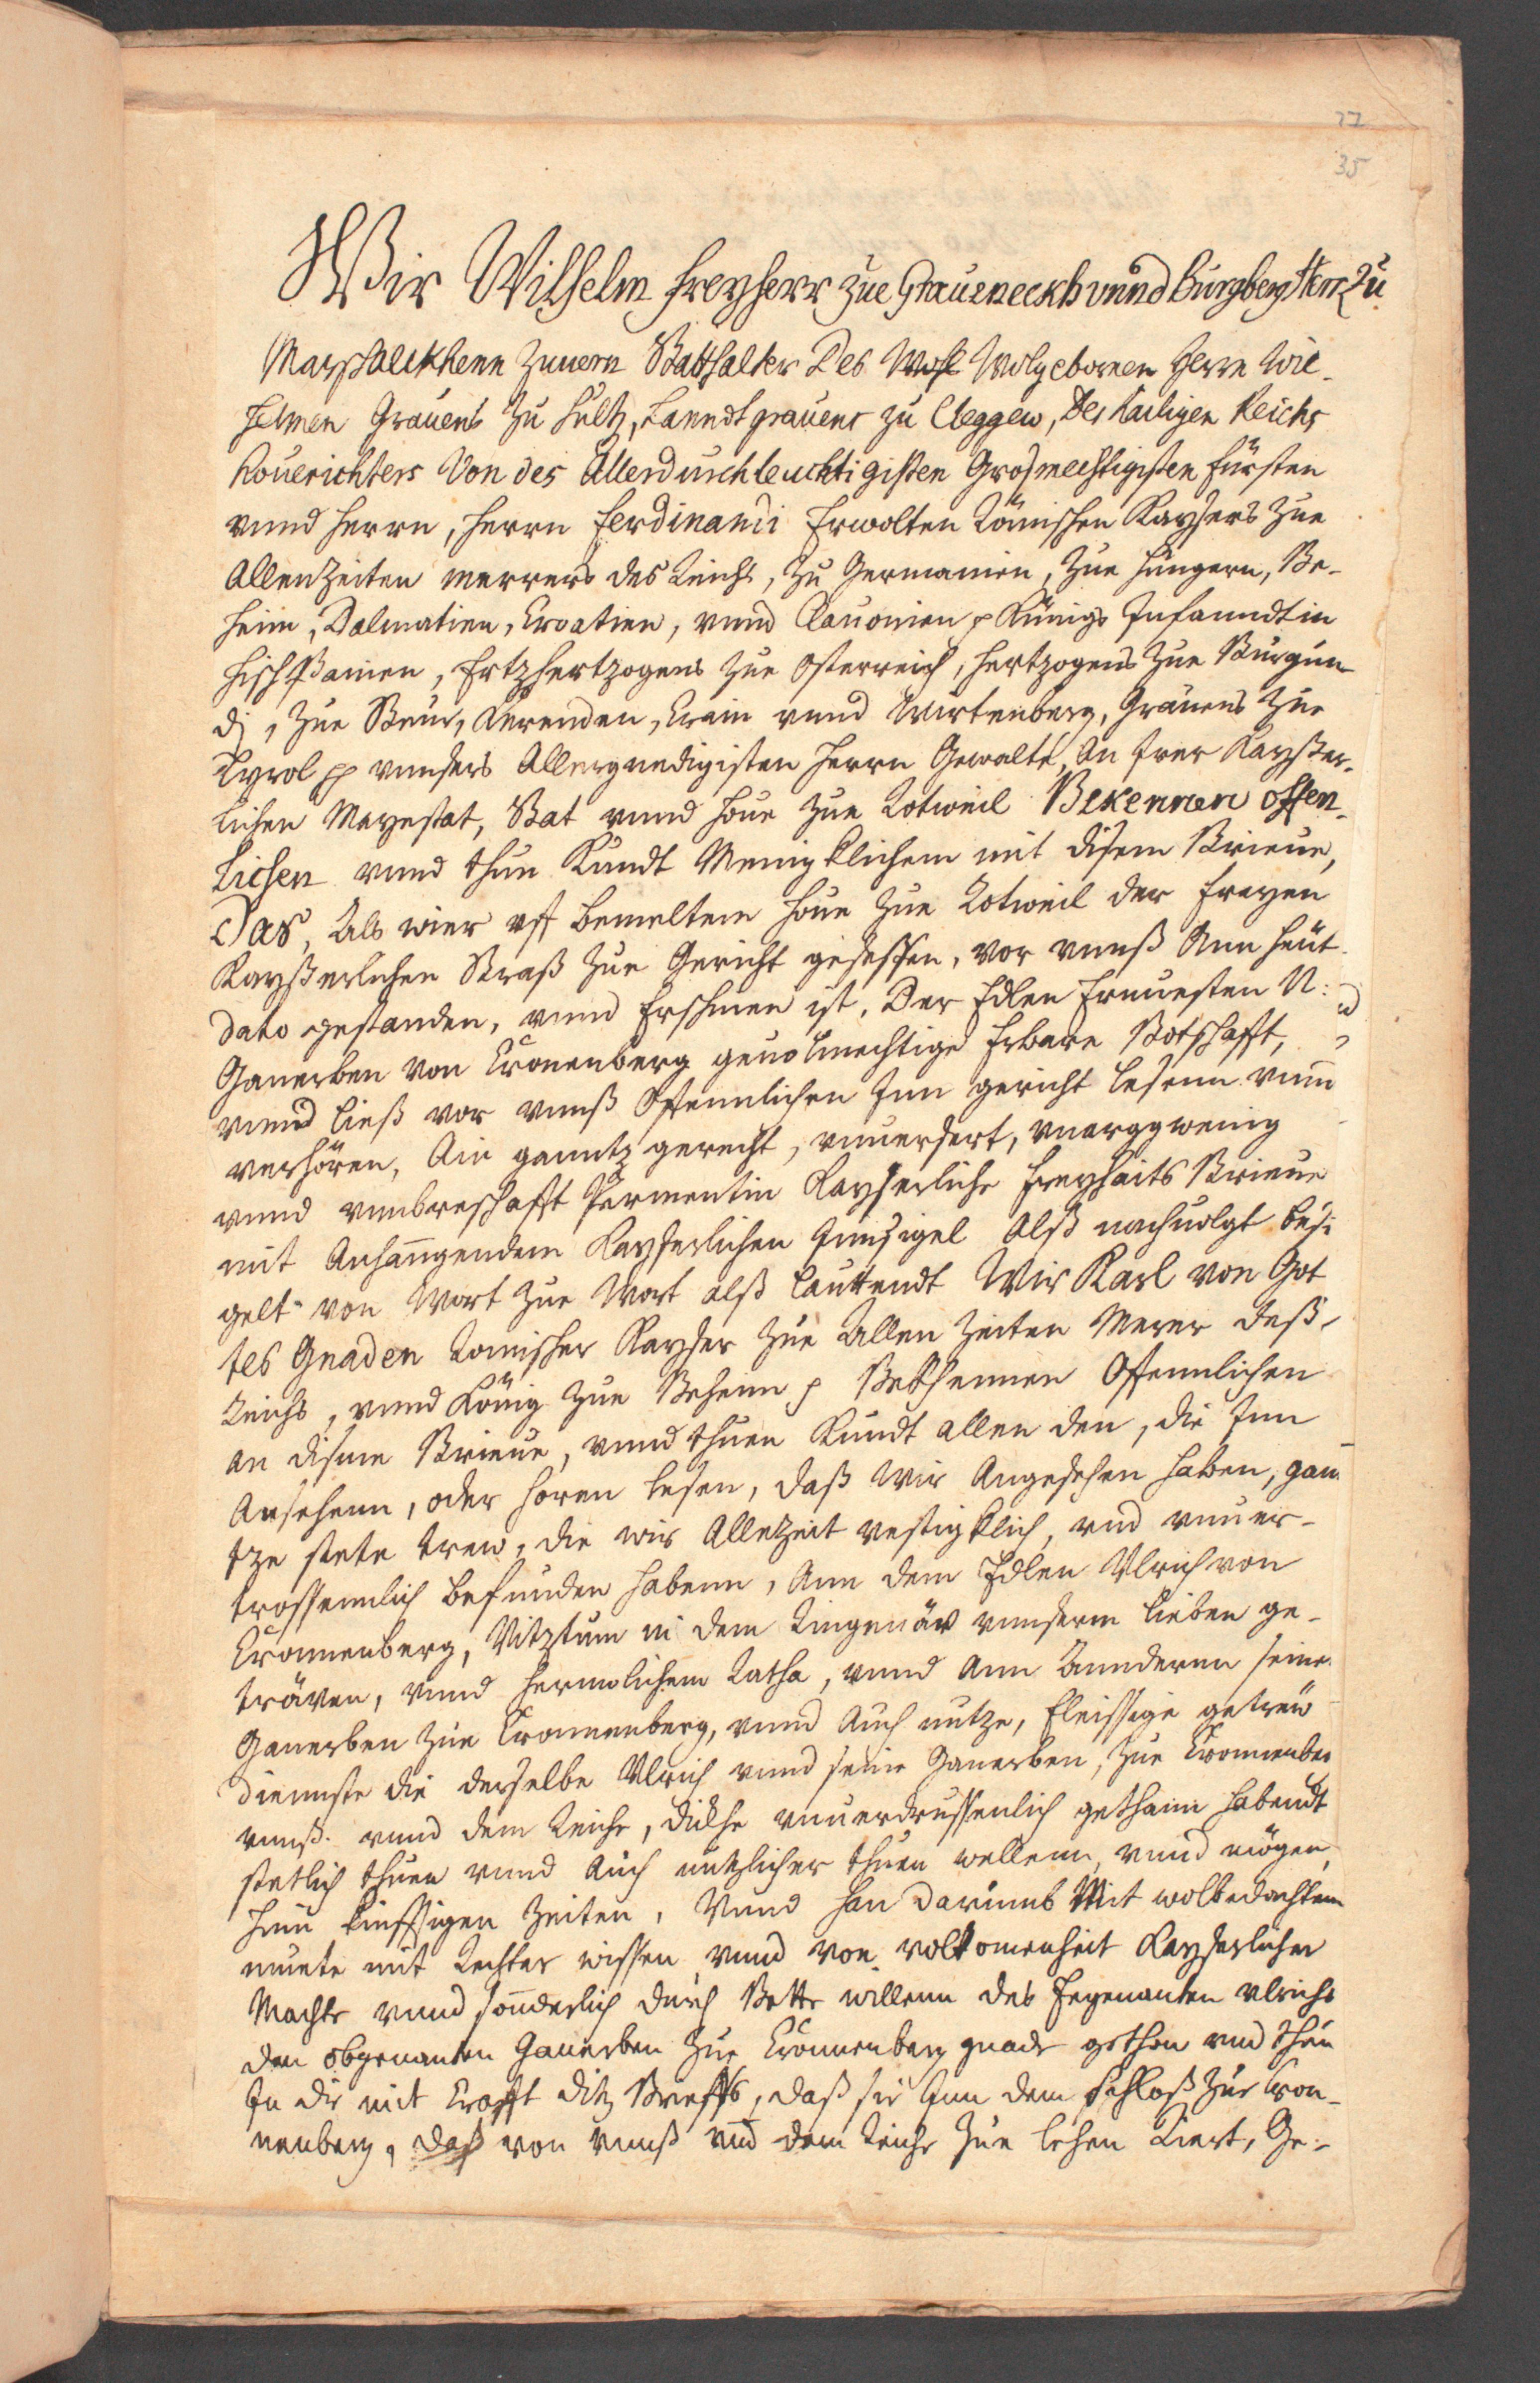 22
35
Wir Wilhelm freyherr zue Graueneckh vnnd Burgberg Herr zu
Marschalckhenn Zimern Statthalter Des Wohl Wolgebornen Herrn Wil-
helmen Grauens zu Sultz, Lanndtgrauens zu Cleggew, Des Hailigen Reichs
Houerichters Von des Allerdurchleuchtigisten Grosmechtigisten fürsten
vnnd Herrn, Herrn Ferdinandi Erwolten Römischen Kaysers Zue
Allen Zeiten merrers des Reichs, Zu Germanien, Zue Hungern, Be-
heim, Dalmatien, Croatien, vnnd Clauonien p Künigs Infanndt in
Hischpanien, Ertzhertzogens Zue Osterreich, Hertzogens Zue Burgun-
dj, Zue Steur, Kerenden, Crain vnnd Wirtenberg, Grauens Zue
Tyrol pp vnnsers Allergnedigisten Herrn Gewalte, An Irer Kayßer-
lichen Mayestat, Stat vnnd Houe Zue Rotweil Bekennen offen-
lichen vnnd thun Kundt Menigklichem mit disem Brieue,
Das, Als wier vff bemeltem Houe Zue Rotweil der freyen
Kayßerlichen Straß Zue Gericht gesessen, vor vnnß Ann heüt
dato gestanden, vnnd Erschinen ist, Der Edlen Ernuesten N:
Ganerben von Cronenberg geuolmechtige Erbare Botschafft,
vnnd ließ vor vnnß Offennlichen Inn gericht lesenn vnnd
verhören, Ain ganntz gerecht, vnuersert, vnargwenig
vnnd vnnbreschafft Permentin Kayserliche freyhaits Brieue
mit Anhanngendem Kayserlichen Innsigel Alß nachuolgt besi-
gelt von Wort Zue Wort alß lauttendt Wir Karl von Got
tes Gnaden Romischer Kayser Zue Allen Zeiten Merer deß
Reichs, vnnd König Zue Beheim p Bekhennen Offennlichen
an disem Brieue, vnnd thuen Kundt allen den, die Inn
Ansehenn, oder horen lesen, daß Wir Angesehen haben, gan-
tze stete trew, die wir Allezeit vestigklich, vnd vnuer-
trossennlich befunden habenn, Ann dem Edlen Vlrich von
Cronnenberg, Vitztum in dem Ringenäw vnnserm lieben ge-
träwen, vnnd Heimlichem Rathe, vnnd Ann Annderenn seine
Ganerben Zue Cronnenberg, vnnd Auch nutze, fleissige getrew
diennste die derselbe Vlrich vnnd seine Ganerben, Zue Cronnenber
vnnß vnnd dem Reiche, dickhe vnuerdrussenlich gethann habendt
stetlich thuen vnnd Auch nutzlicher thuen wellenn, vnnd mögen,
Hin kinfftigen Zeiten, Vnnd han darumb Mit wolbedachtem
muete mit Rechter wissen vnnd von volkomenheit Kayserlicher
Machte vnnd sonnderlich durch Bette willenn des Egenanten vlrichs
den obgenanten Ganerben Zue Cronnenberg gnade gethon vnd thun
In die mit Crafft ditz Brieffs, daß sie Inn dem schloß Zue Cron-
nenberg, daß von vnnß vnd dem Reiche Zue lehen Riert, Ge-